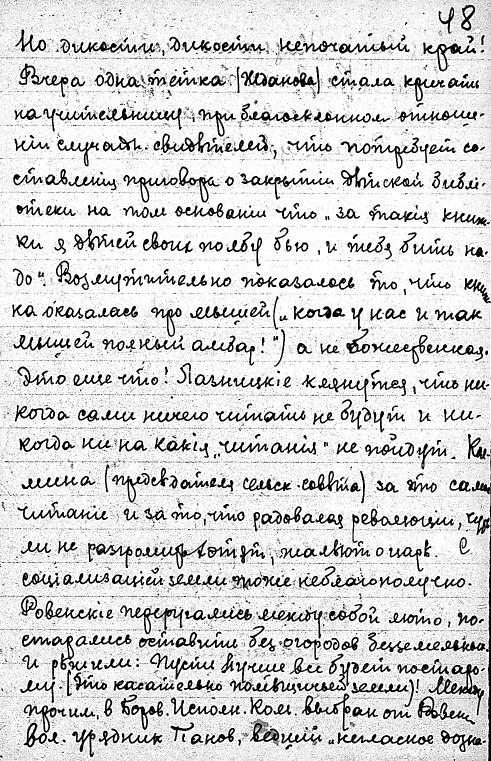 48
Но дикости, дикости непочатый край!
Вчера одна тетка (Жданова) стала кричать
на учительницу, при благосклонном отноше-
нiи случайн. свидѣтелей, что потребует со-
ставленiя приговора о закрытiи дѣтской библi-
отеки на том основанiи что „за такiя книж-
ки я дѣтей своих полбу бью, и тебя бить на-
до". Возмутительно показалось то, что книж
ка оказалась про мышей („когда у нас и так
мышей полный амбар!") а не божественная.
Это еще что! Лазницкiе клянутся, что ни-
когда сами ничего читать не будут и ни-
когда ни на какiя „читанiя" не пойдут.
мина (предсѣдателя сельск. совѣта) за то самое
читанiе и за то, что радовался революцiи, чуть
ли не разгромив жалѣют о царѣ. С
соцiализацiей земли тоже неблагополучно.
Ровенскiе переругались между собой люто, по-
старались оставить без огородов безземельных
и рѣшили: Пусть лучше все будет постаро-
му. (Это касательно помѣщичьей земли)! Между
прочим, в Боров. Исполн. Ком. выбран от Ровен
вол. урядник Панов, ведшiй „негласное дозна-